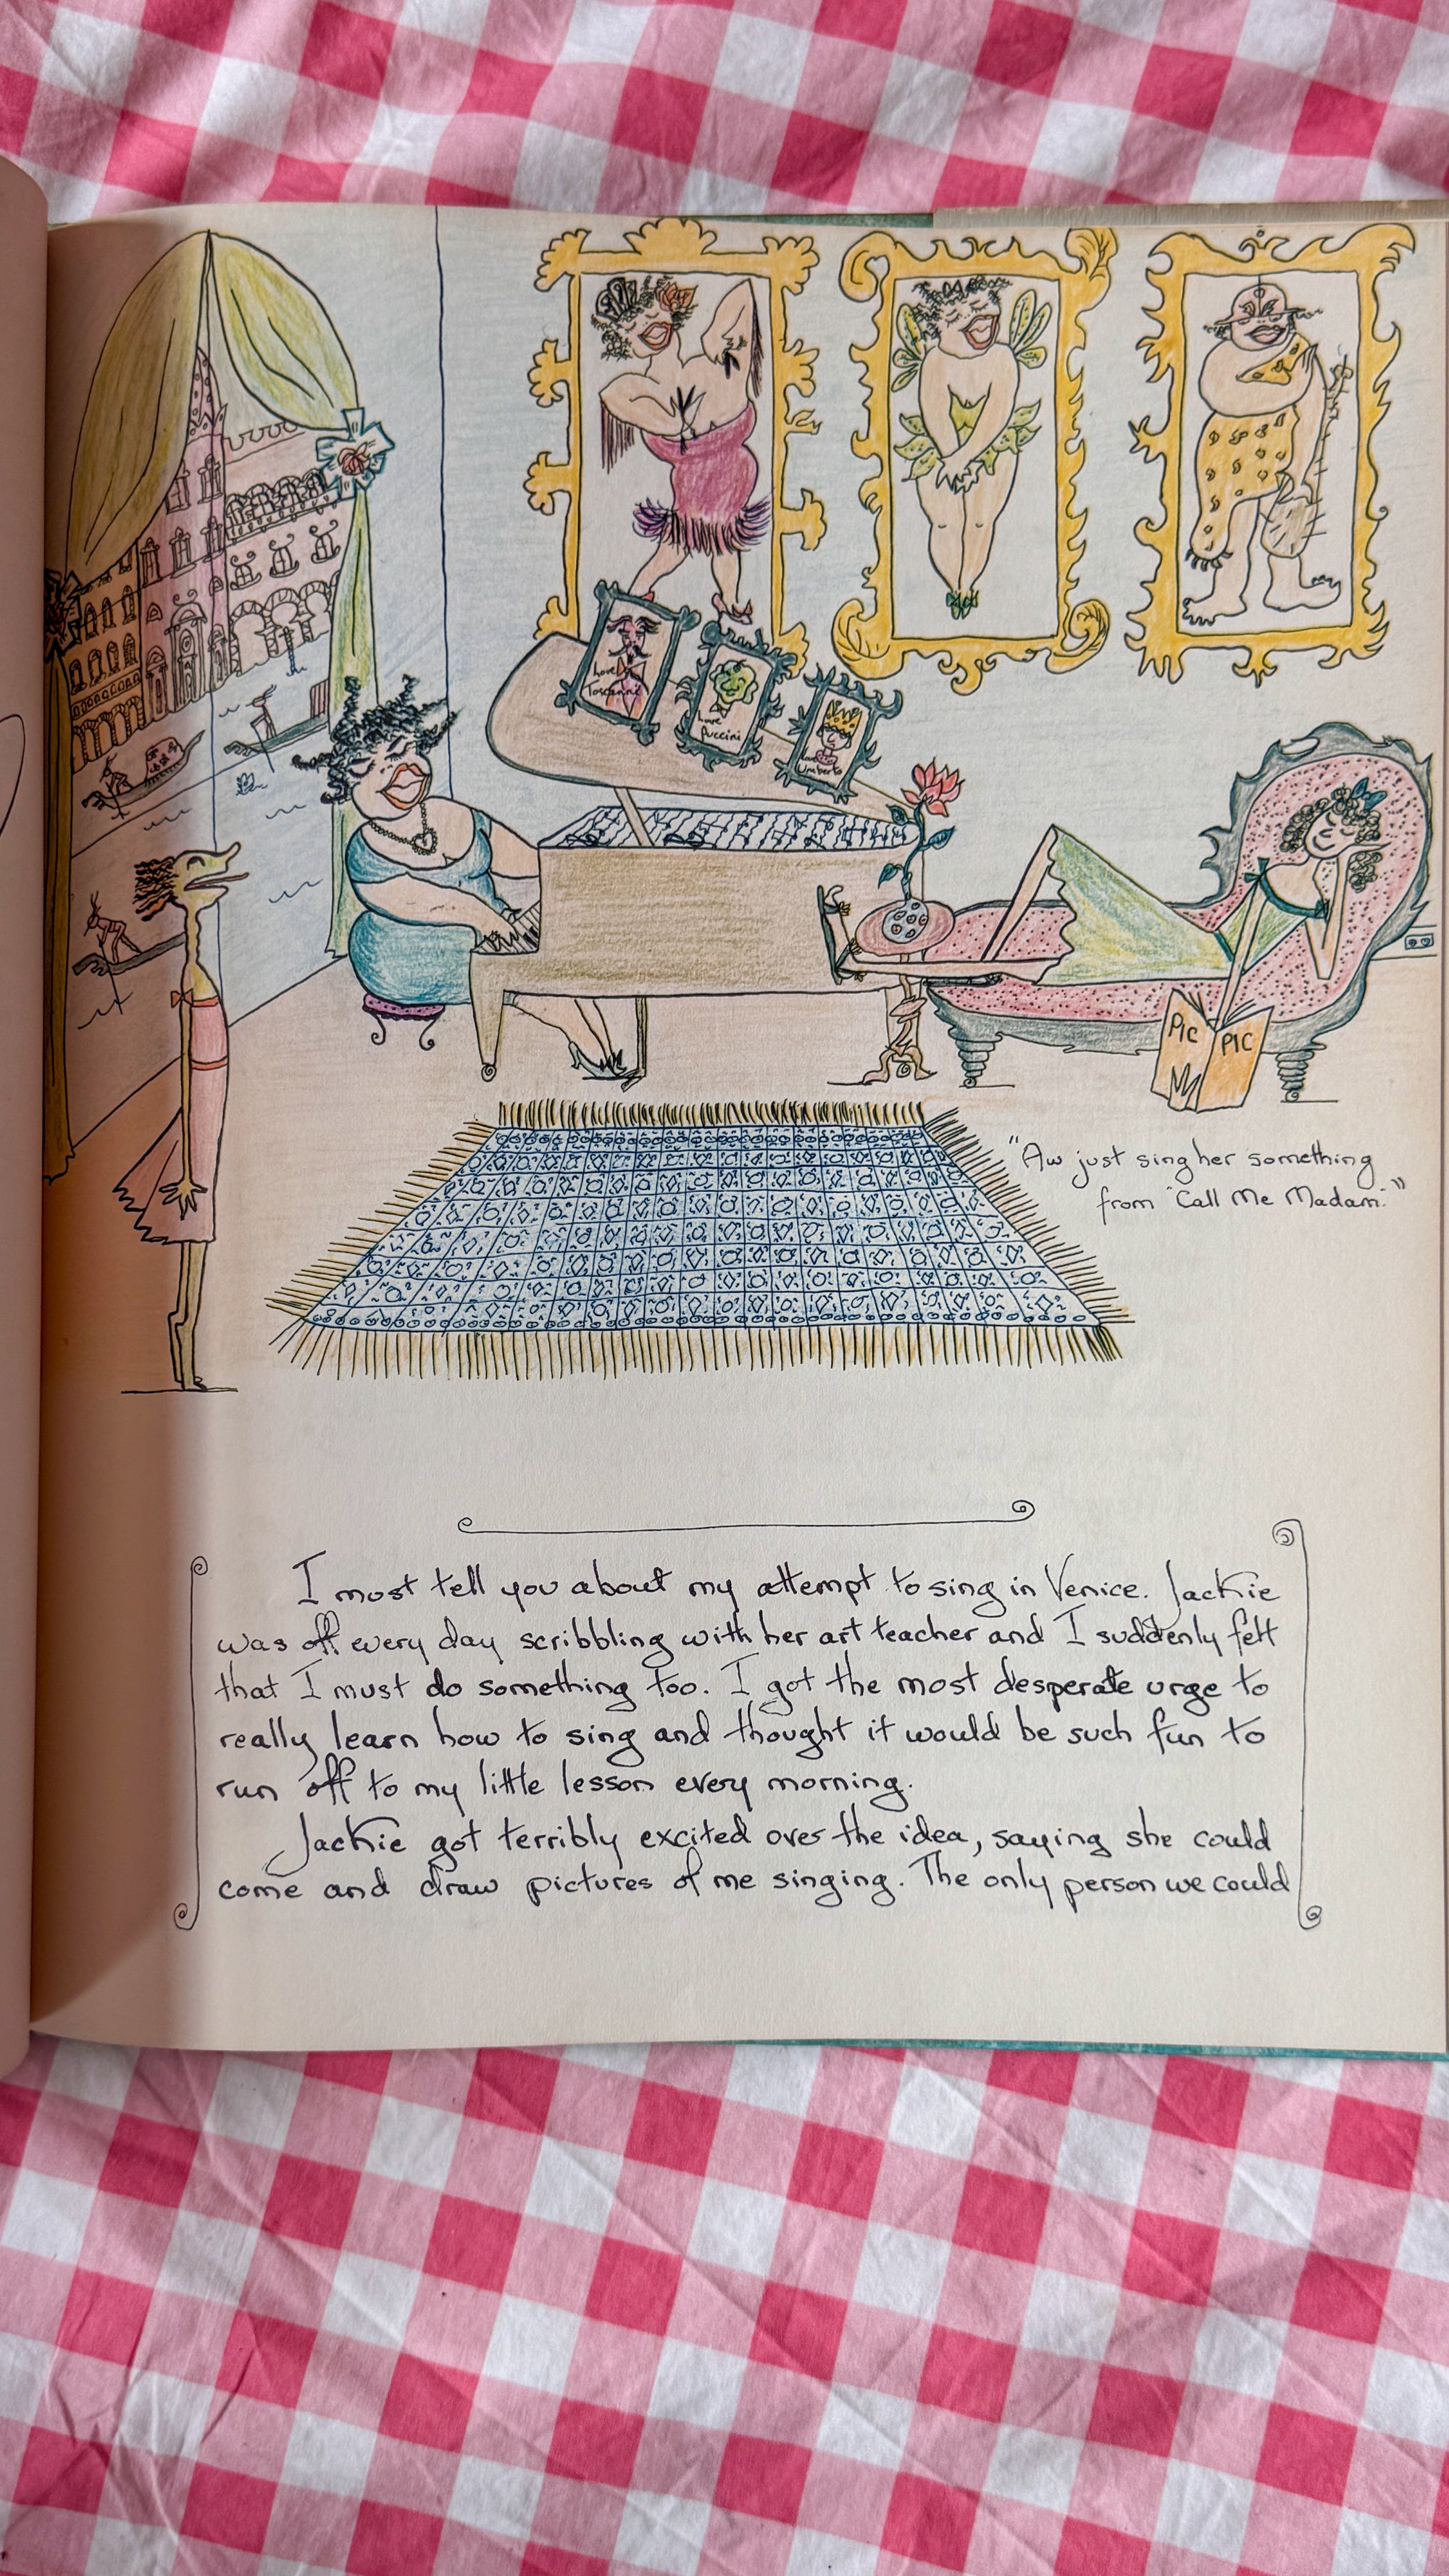 Love
Toscanini
Love
Puccini
Love
Umberto
PIC PIC
"Aw just sing her something
from "Call Me Madam.""
I most tell you about my attempt to sing in Venice. Jackie
was off every day scribbling with her art teacher and I suddenly felt
that I must do something too. I got the most desperate urge to
really learn how to sing and thought it would be such fun to
run off to my little lesson every morning.
Jackie got terribly excited over the idea, saying she could
come and draw pictures of me singing. The only person we could